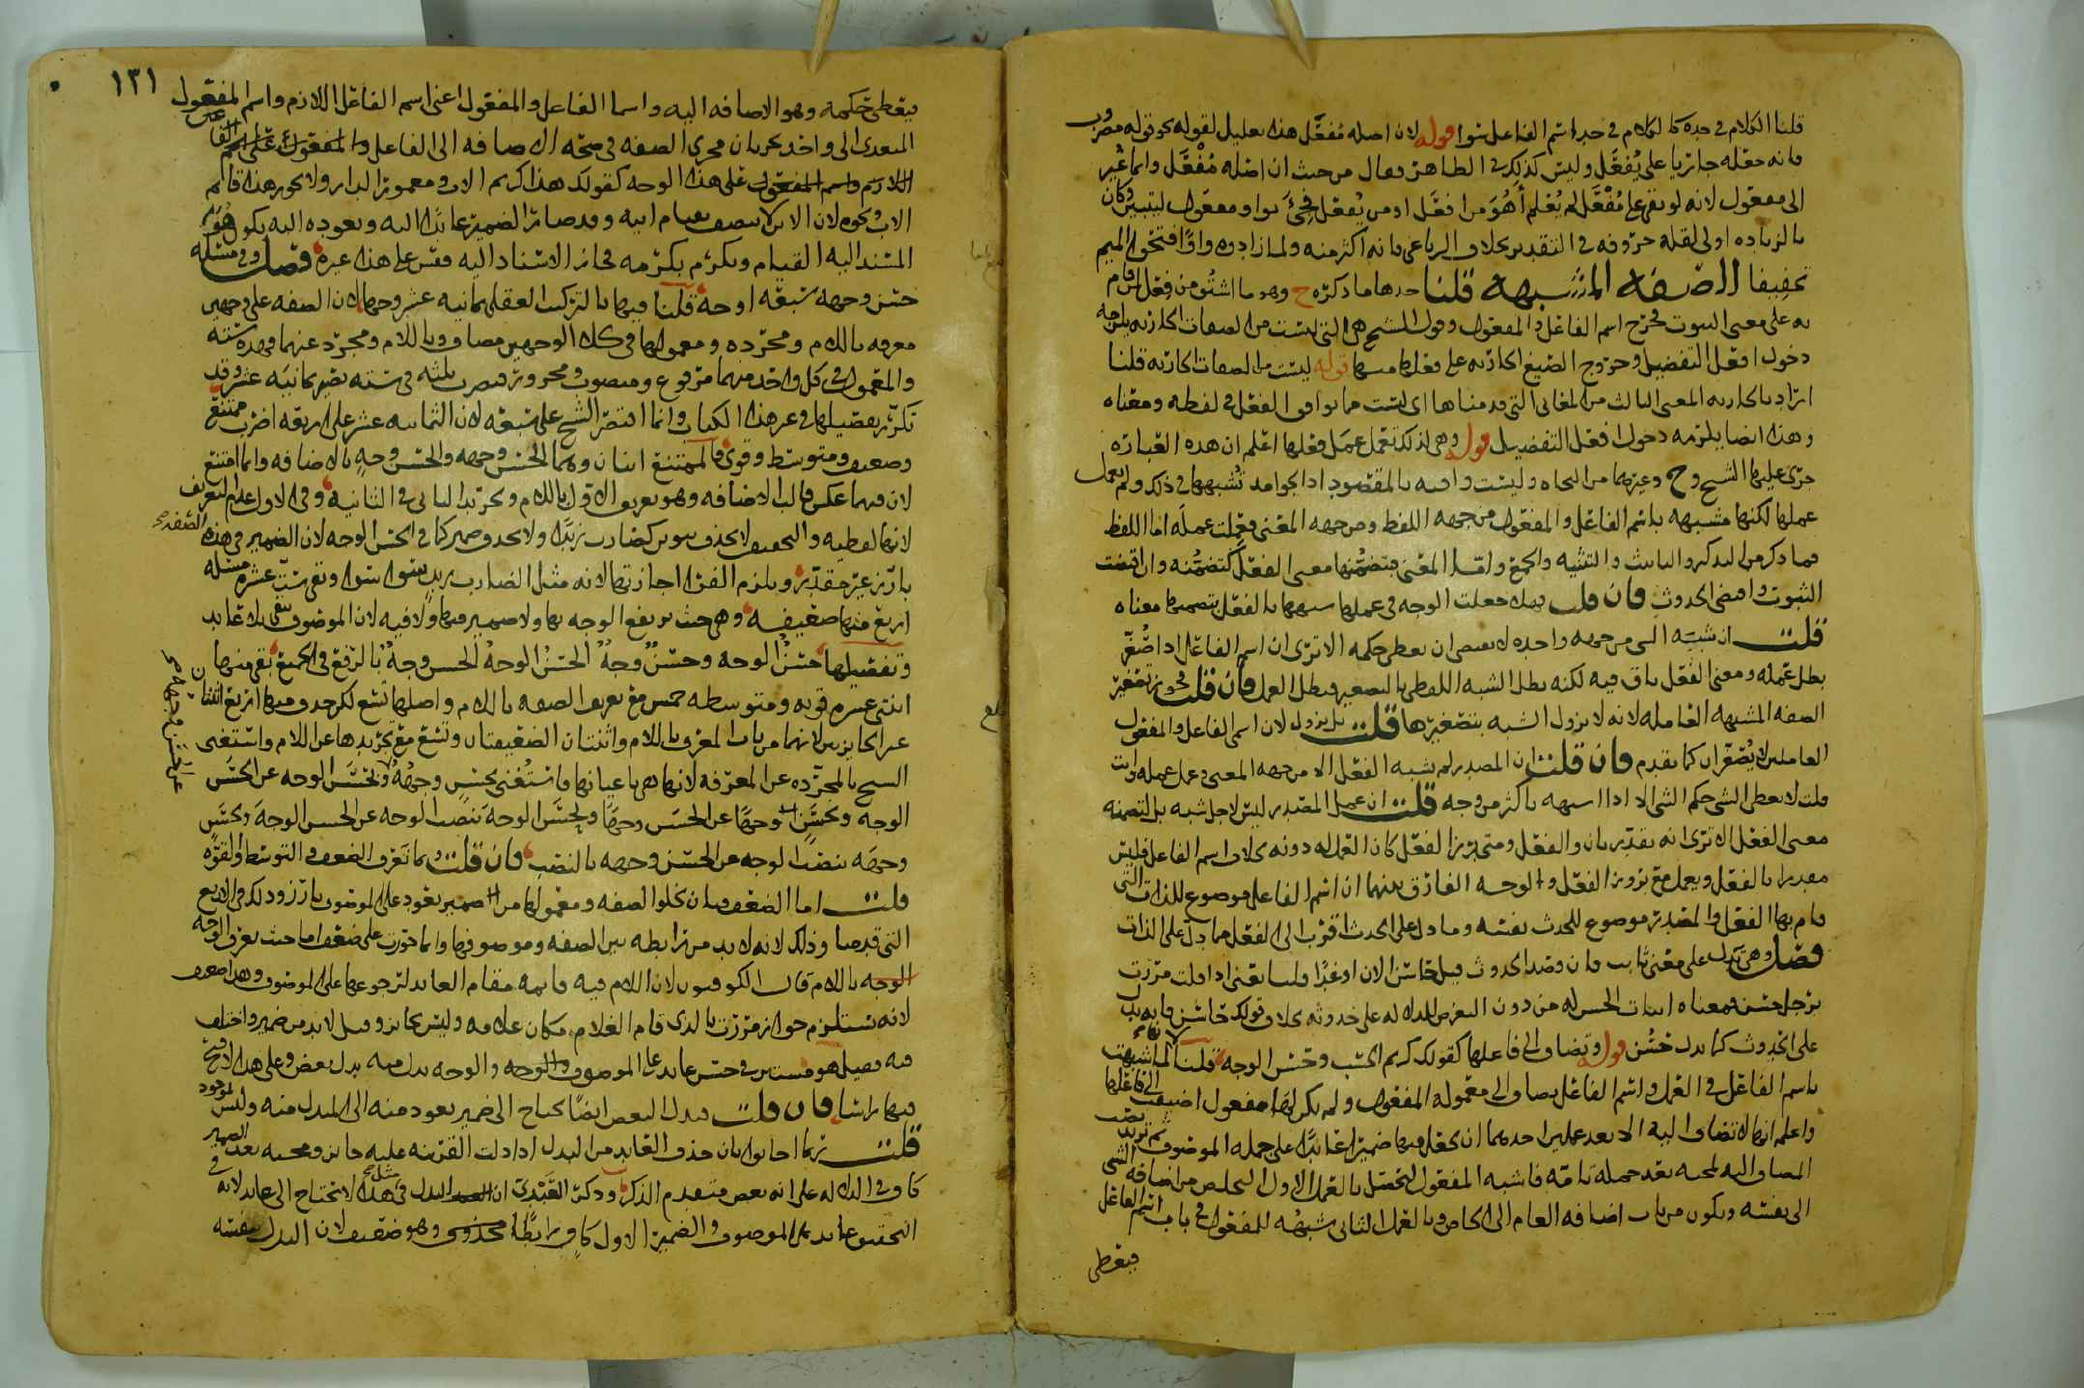 قلنا الكلام في حده كالكلام في حد اسم الفاعل سوا قوله لان اصله مُفعَل هذا تعليل لقوله نحو قوله مضروب
فانه جعله جاريا على يُفعَل وليس كذلك في الظاهر فقال من حيث ان اصله مُفْعَل وانما غُير
الى مفعول لانه لو بقي على مُفْعَل لم يُعلم أهُوَ من افعَل او من يُفعَل فجيءَ بواو مفعول ليتبين وكان
بالزياده اولى لقلة حروفه في التقدير بخلاف الرباعي فانه اكثر منه ولما زادوه واوًا فتحوا الميم
تخفيفا الصفه المشبهه قلنا حدها ما ذكره ح وهو ما اشتُق من فعل لازم لمن قام
به على معنى الثبوت فخرج اسم الفاعل والمفعول وقول الشيخ هي التي ليست من الصفات الجاريه يلزمه
دخول افعل التفضيل وخروج الصيغ الجاريه على فعلها منها قوله ليست من الصفات الجاريه قلنا
اراد بالجاريه المعنى الثالث من المعاني التي قدمناها اي ليست مما توافق الفعل في لفظه ومعناه
وهذا ايضا يلزمه دخول افعل التفضيل قوله وهي لذلك تعمل عمل فعلها اعلم ان هذه العباره
جرى عليها الشيخ و ح وغيرهما من النحاه وليست وافيه بالمقصود اذ الجوامد تُشبهها في ذلك ولم تعمل
عملها لكنها مشبهه باسم الفاعل والمفعول من جهه اللفظ ومن جهه المعنى فعملت عمله اما اللفظ
فما ذكر من التذكير والتانيث والتثنيه والجمع واما المعنى فتضمنها معنى الفعل كتضمُّنه وان اقتضت
الثبوت واقتضى الحدوث فان قلت فهلا جعلت الوجه في عملها شبهها بالفعل بتضمنها معناه
قلت ان شبه الشي من جهه واحده لا يقتضي ان يعطى حكمه الا ترى ان اسم الفاعل اذا صُغّر
بطل عمله ومعنى الفعل باق فيه لكنه بطل الشبه اللفظي بالتصغير فبطل العمل فان قلت فجوز تصغير
الصفه المشبهه العامله لانه لا يزول الشبه بتصغيرها قلت بل يزول لان اسمي الفاعل والمفعول
العاملين لا يُصغّران كما تقدم فان قلت ان المصدر لم يشبه الفعل الا من جهه المعنى وعمل عمله وانت
قلت لا يعطى الشي حكم الشي الا اذا اشبهه باكثر من وجه قلت ان عمل المصدر ليس لاجل شبه بل لتضمنه
معنى الفعل الا ترى انه يقدر بان والفعل ومتى برز الفعل كان العمل له دونه بخلاف اسم الفاعل فليس
مقدرا بالفعل ويعمل مع بروز الفعل والوجه الفارق بينهما ان اسم الفاعل موضوع للذات التي
قام بها الفعل والمصدر موضوع للحدث نفسه وما دل على الحدث اقرب الى الفعل مما دل على الذات
فصل وهي تدل على معنى ثابت فان قصد الحدوث قيل حاسن الان او غدًا قلنا يعني اذا قلت مررت
برجل حسن فمعناه اثبات الحسن له من دون التعرض للدلاله على حدوثه بخلاف قولك حاسن فانه يدل
على الحدوث كما يدل حَسُن قوله وتضاف الى فاعلها كقولك كريم الحسب وحسن الوجه قلنا لما اشبهت
باسم الفاعل في العمل واسم الفاعل يضاف الى معموله المفعول ولم يكن لها مفعول اضيفت الى فاعلها
واعلم انها لا تضاف اليه الا بعد عملين احدهما ان يجعل فيها ضميرًا عائدًا على جمله الموصوف ثم تريد نصب
المضاف اليه لمجيه بعد جمله تامه فاشبه المفعول ليحصل بالعمل الاول التخلص من اضافه الشي
الى نفسه ويكون من باب اضافه العام الى الخاص وبالعمل الثاني شبهه للمفعول في باب اسم الفاعل
فيعطى
١٣١
فيعطى حكمه وهو الاضافه اليه واسما الفاعل والمفعول اعني اسم الفاعل اللازم واسم المفعول
المتعدي الى واحد يجريان مجرى الصفه في صحه الاضافه الى الفاعل
على هذا الوجه كقولك هذا كريم الاب ومعمور الدار ولا يجوز هذا قائم
الاب ونحوه لان الابن لا يتصف بقيام ابيه وقد صار الضمير عائدًا اليه وبعوده اليه يكون هو
المسند اليه القيام ويكرُم بكرمه فجاز الاسناد اليه وقس على هذا غيره فصل وفي مسئله
حسن وجهه سبعه اوجه قلنا فيها بالتركيب العقلي ثمانيه عشر وجها لان الصفه على وجهين
معرفه باللام ومجرده ومعمولها في كلا الوجهين مضاف وباللام ومجرد عنهما فهذه سته
والمعمول في كل واحد منها مرفوع ومنصوب ومجرور فتضرب ثلثه في سته تصير ثمانيه عشر وقد
تكرر تفصيلها في غير هذا الكتاب وانما اقتصر الشيخ على سبعه لان الثمانيه عشر على اربعه اضرب ممتنع
وضعيف ومتوسط وقوى فالممتنع اثنان وهما الحسن وجهه والحسن وجهٍ بالاضافه وانما امتنع
لان فيهما عكس قالب الاضافه وهو تعريف الاول باللام وتجريد الثاني في الثانيه وفي الاول اعدام لتعريف الصفه صح
لانها لفظيه والتخفيف لا بحذف تنوين كضارب زيدًا ولا بحذف ضمير كما في الحسن الوجه لان الضمير في هذه
بارز غير مقدر ويلزم الفرا اجازتها لانه مثل الضارب زيد سوا سوا وبقي ست عشره مسئله
اربع منها ضعيفه وهي حيث يرتفع الوجه بها ولا ضمير فيها ولا فيه لان الموصوف يبقى بلا عايد
وتفصيلها حسَنُ الوجه وحسَنٌ وجهٌ الحسَنُ الوجهُ الحسن وجهٌ بالرفع في الجميع بقي منها
اثنتي عشره قويه ومتوسطه خمس مع تعريف الصفه باللام واصلها تسع لكن حذف منها اربع اثنتان
غير الجائزتين لانهما من باب المعرف باللام واثنتان الضعيفتان وتسع مع تجريدها عن اللام واستغنى
الشيخ بالمجرده عن المعرفه لانها هي باعيانها فاستُغني بحسنٍ وجهُهُ وبحسَن الوجه عن الحسَن
الوجه وبحسَنٍ وجهًا عن الحسَن وجهًا وبحسَن الوجهَ بنصب الوجه عن الحسن الوجهَ وبحسَنٍ
وجهَه بنصب الوجه عن الحسَن وجهه بالنصب فان قلت وبما تعرف الضعف والتوسط والقوه
قلت اما الضعف فبان تخلوا الصفه ومعمولها من ضمير يعود على الموصوف بارز وذلك في الاربع
التي قدمنا وذلك لانه لا بد من رابطه بين الصفه وموصوفها وانما جوزت على ضعفها حيث تعرف الوجه
باللام قال الكوفيون لان اللام فيه قايمه مقام العايد لرجوعها على الموصوف وهذا ضعيف
لانه يستلزم جواز مررت بالذي قام الغلام مكان غلامه وليس بجائز وقيل لابد من ضمير واختلف
فيه فقيل هو مستتر في حسن عايد على الموصوف والوجه بدل منه بدل بعض وعلى هذا لا قبح
فيها راسا فان قلت فبدل البعض ايضًا يحتاج الى ضمير يعود منه الى المبدل منه وليس بموجود
قلت ربما اجابوا بان حذف العايد من البدل اذا دلت القرينه عليه جايز ومجيه بعد الضمير
كاف في الدلاله على انه بعض متقدم الذكر وذكر العَبْدِي ان البدل في مثل هذا لا يحتاج الى عايد لانه في
التحقيق عايد على الموصوف والضمير الاول كافٍ رابطًا وهو ضعيف لان البدل بنفسه